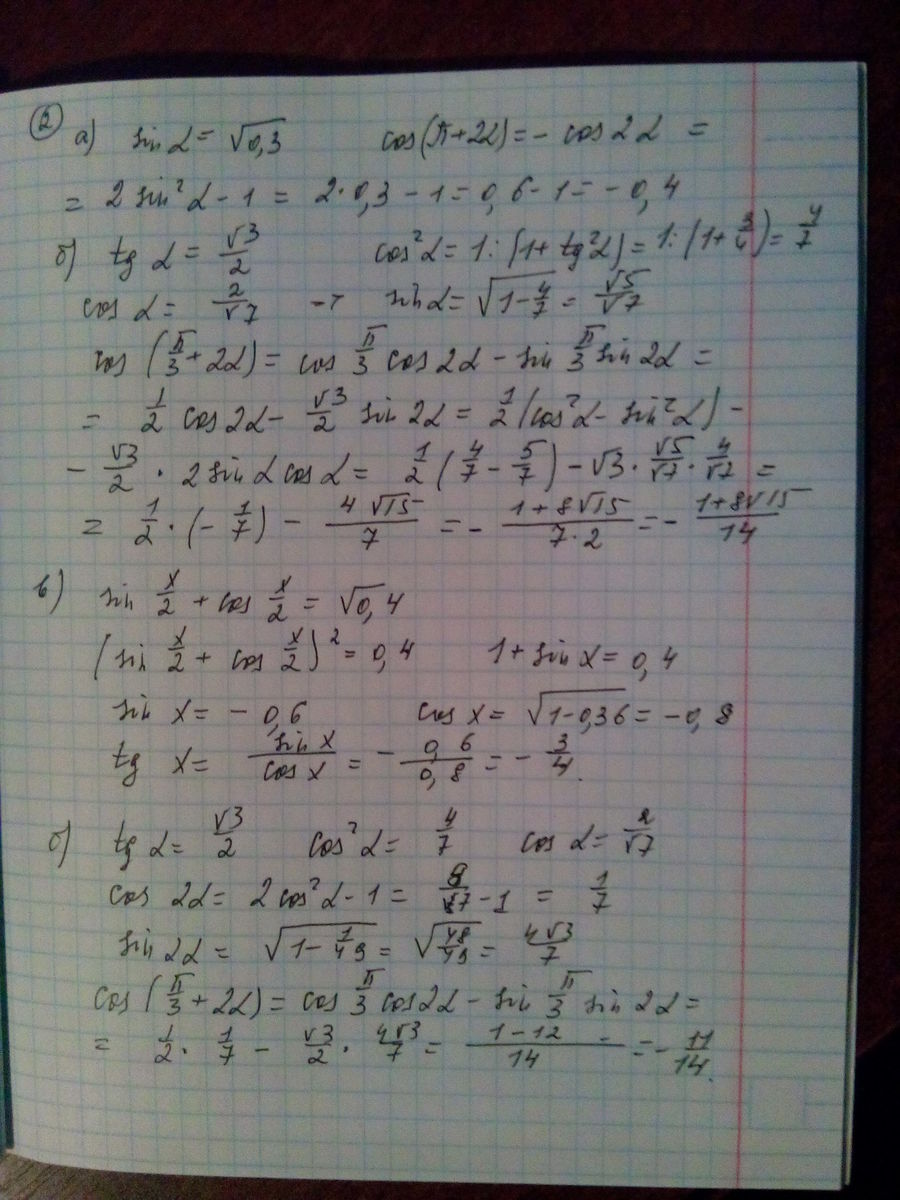 ② а) sin α = √0,3 cos(π+2α) = - cos 2α =
= 2 sin² α - 1 = 2·0,3 - 1 = 0,6 - 1 = - 0,4
б) tg α = √3/2 cos²α = 1 : (1 + tg²α) = 1 : (1 + 3/4) = 4/7
cos α = 2/√7 → sin α = √(1 - 4/7) = √5/√7
cos (π/3 + 2α) = cos π/3 cos 2α - sin π/3 sin 2α =
= 1/2 cos 2α - √3/2 sin 2α = 1/2 (cos²α - sin²α) -
- √3/2 · 2 sin α cos α = 1/2 (4/7 - 5/7) - √3 · √5/√7 · 4/√7 =
= 1/2 · (- 1/7) - 4√15/7 = - (1 + 8√15)/(7·2) = - (1+8√15)/14
в) sin x/2 + cos x/2 = √0,4
(sin x/2 + cos x/2)² = 0,4 1 + sin x = 0,4
sin x = - 0,6 cos x = √(1-0,36) = - 0,8
tg x = sin x/cos x = - 0,6/0,8 = - 3/4.
б) tg α = √3/2 cos²α = 4/7 cos α = 2/√7
cos 2α = 2 cos²α - 1 = 8/7 - 1 = 1/7
sin 2α = √(1 - 1/49) = √(48/49) = 4√3/7
cos (π/3 + 2α) = cos π/3 cos 2α - sin π/3 sin 2α =
= 1/2 · 1/7 - √3/2 · 4√3/7 = (1 - 12)/14 = - 11/14.